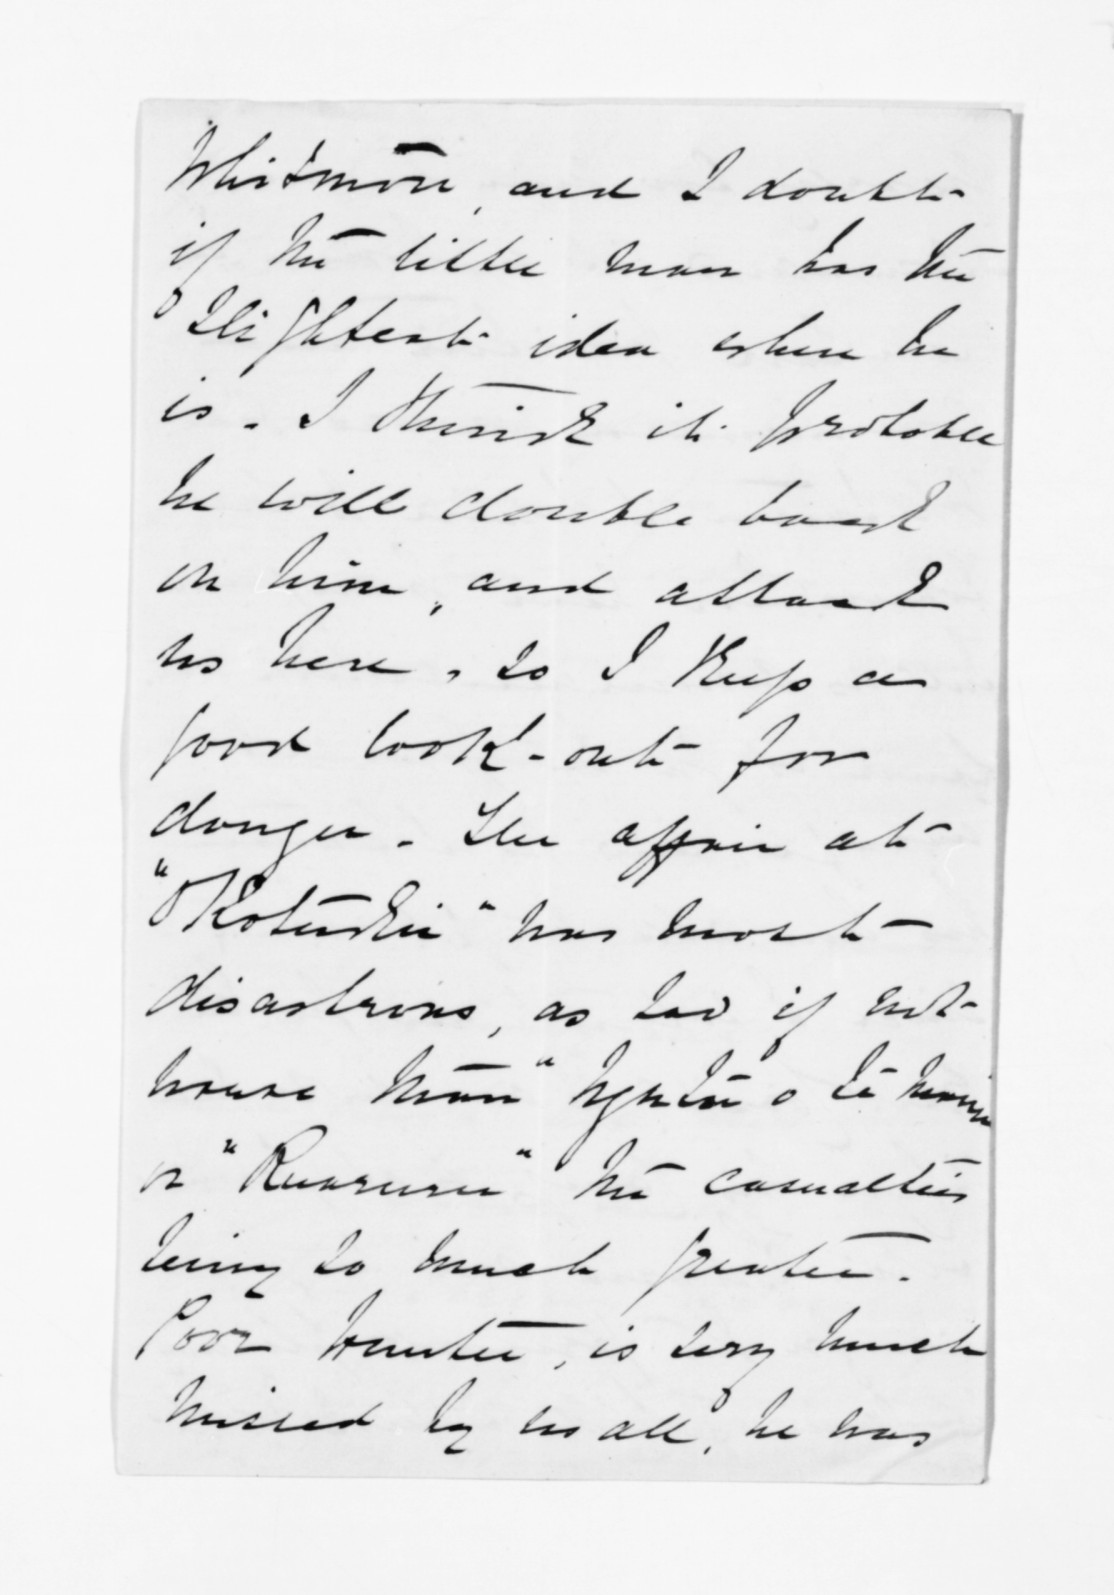 Whitmore, and I doubt
if the little man has the
slightest idea where he
is. I think it probable
he will double back
on him, and attack
us here, so I keep a
good look-out for
danger. The affair at
"Okotuku" was most
disastrous, as bad if not
worse than "Ngutu o te Manu
or "Ruaruru" the casualties
being so much greater.
Poor Hunter, is very much
missed by us all, he was